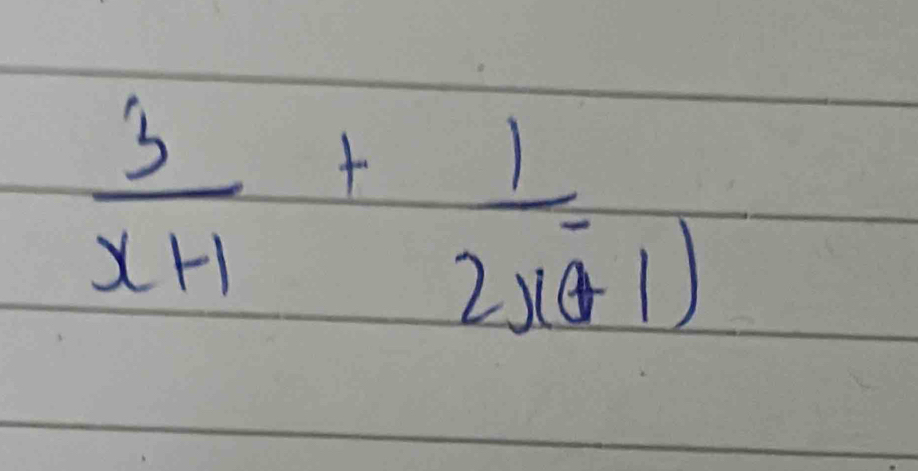 3/(x+1) + 1/(2x(-1))